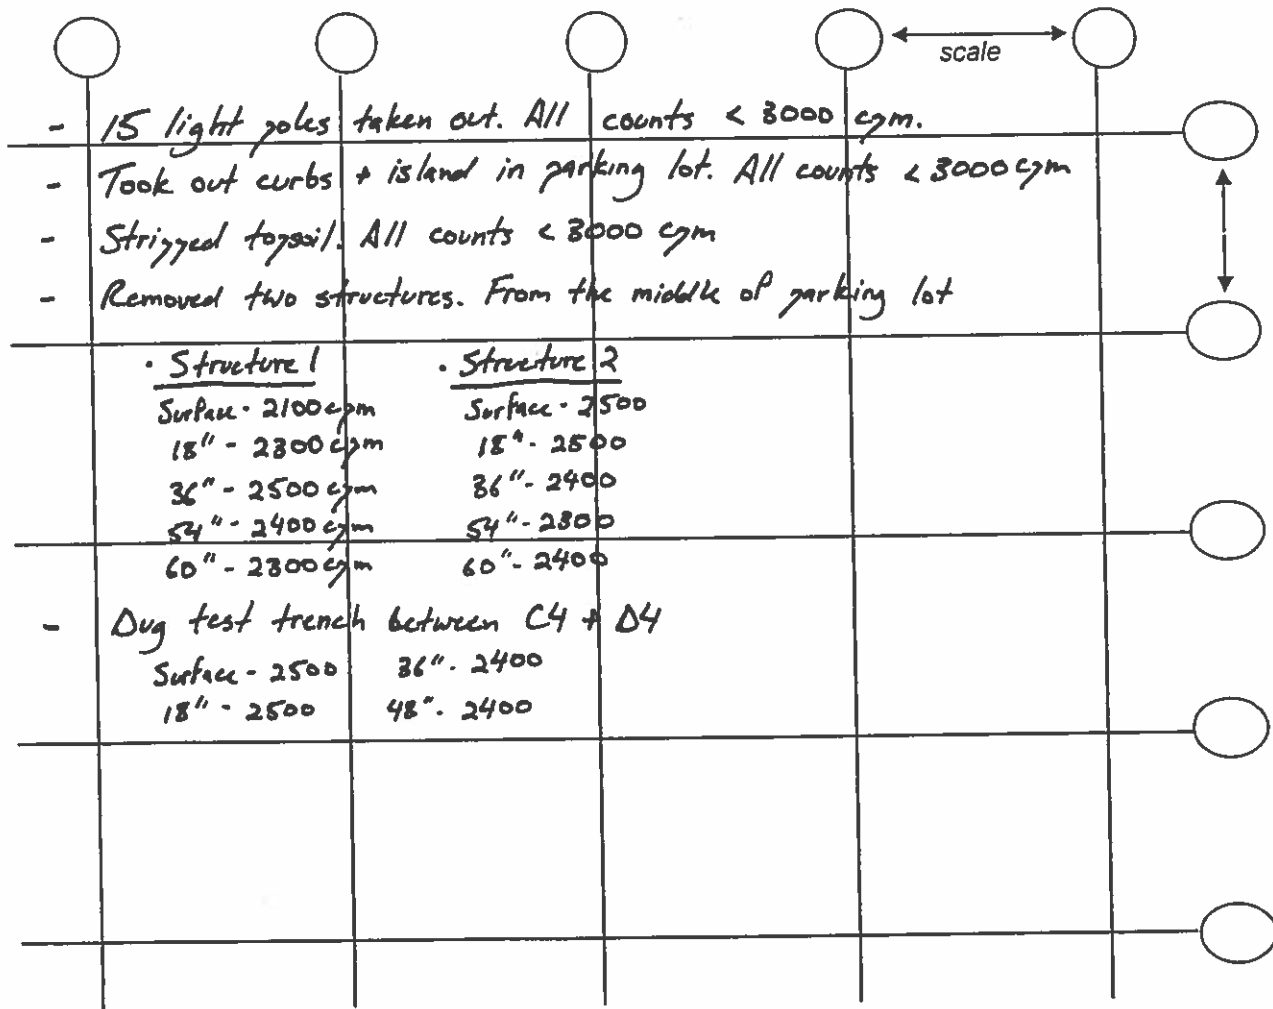 scale
- 15 light poles taken out. All counts < 3000 cpm.
- Took out curbs + island in parking lot. All counts < 3000 cpm
- Stripped topsoil. All counts < 3000 cpm
- Removed two structures. From the middle of parking lot
· Structure 1 · Structure 2
Surface - 2100 cpm Surface - 2500
18" - 2300 cpm 18" - 2500
36" - 2500 cpm 36" - 2400
54" - 2400 cpm 54" - 2300
60" - 2300 cpm 60" - 2400
- Dug test trench between C4 + D4
Surface - 2500 36" - 2400
18" - 2500 48" - 2400